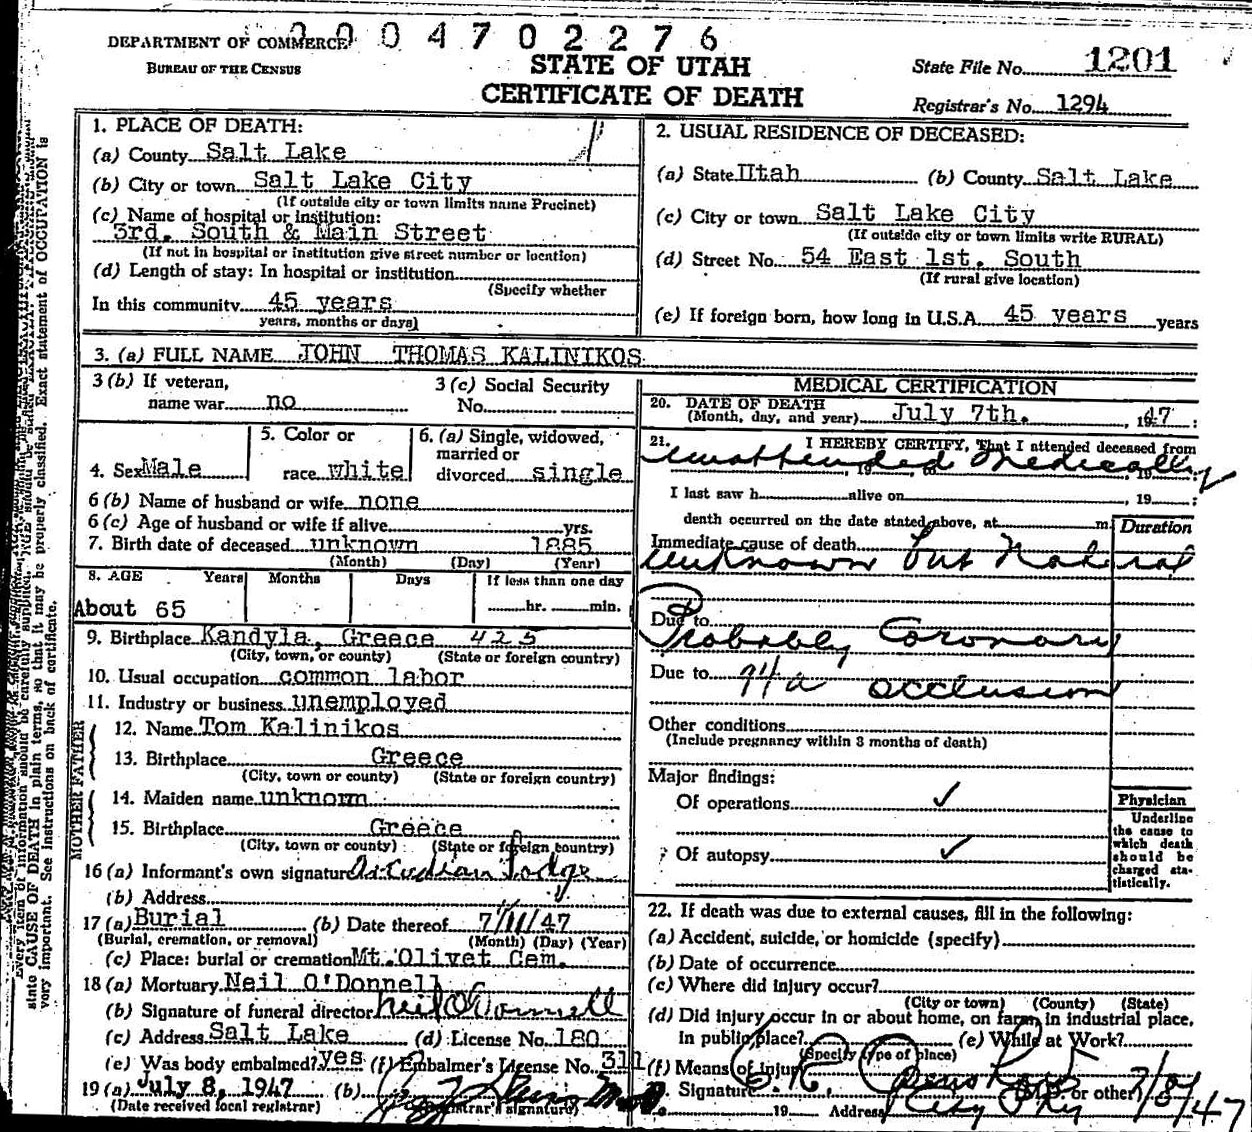 0 0 0 4 7 0 2 2 7 6
DEPARTMENT OF COMMERCE
BUREAU OF THE CENSUS
STATE OF UTAH
CERTIFICATE OF DEATH
State File No. 1201
Registrar's No. 1294
1. PLACE OF DEATH:
(a) County Salt Lake
(b) City or town Salt Lake City
(If outside city or town limits name Precinct)
(c) Name of hospital or institution:
3rd. South & Main Street
(If not in hospital or institution give street number or location)
(d) Length of stay: In hospital or institution
(Specify whether
In this community 45 years
years, months or days)
2. USUAL RESIDENCE OF DECEASED:
(a) State Utah (b) County Salt Lake
(c) City or town Salt Lake City
(If outside city or town limits write RURAL)
(d) Street No. 54 East 1st. South
(If rural give location)
(e) If foreign born, how long in U.S.A. 45 years years
3. (a) FULL NAME JOHN THOMAS KALINIKOS
3 (b) If veteran,
name war no
3 (c) Social Security
No.
4. Sex Male
5. Color or
race white
6. (a) Single, widowed,
married or
divorced single
6 (b) Name of husband or wife none
6 (c) Age of husband or wife if alive yrs.
7. Birth date of deceased unknown 1885
(Month) (Day) (Year)
8. AGE Years Months Days If less than one day
About 65 hr. min.
9. Birthplace Kandyla, Greece 425
(City, town, or county) (State or foreign country)
10. Usual occupation common labor
11. Industry or business unemployed
FATHER
12. Name Tom Kalinikos
13. Birthplace Greece
(City, town or county) (State or foreign country)
MOTHER
14. Maiden name unknorm
15. Birthplace Greece
(City, town or county) (State or foreign country)
16 (a) Informant's own signature Arcadian Lodge
(b) Address
17 (a) Burial (b) Date thereof 7/11/47
(Burial, cremation, or removal) (Month) (Day) (Year)
(c) Place: burial or cremation Mt. Olivet Cem.
18 (a) Mortuary Neil O'Donnell
(b) Signature of funeral director Neil O'Donnell
(c) Address Salt Lake (d) License No. 180
(e) Was body embalmed? yes (f) Embalmer's License No. 311
19 (a) July 8, 1947 (b)
(Date received local registrar) (Registrar's signature)
MEDICAL CERTIFICATION
20. DATE OF DEATH
(Month, day, and year) July 7th. , 1947
21. I HEREBY CERTIFY, That I attended deceased from
unattended medically
I last saw h alive on , 19
death occurred on the date stated above, at m. Duration
Immediate cause of death
unknown but Natural
Due to
Probably Coronary
Due to 94a occlusion
Other conditions
(Include pregnancy within 3 months of death)
Major findings:
Of operations ✓
Of autopsy ✓
Physician
Underline
the cause to
which death
should be
charged sta-
tistically.
22. If death was due to external causes, fill in the following:
(a) Accident, suicide, or homicide (specify)
(b) Date of occurrence
(c) Where did injury occur?
(City or town) (County) (State)
(d) Did injury occur in or about home, on farm, in industrial place,
in public place? (e) While at Work?
(Specify type of place)
(f) Means of injury
Signature or other) 7/8/47
19 Address City Phy
Every item of information should be carefully supplied.
state CAUSE OF DEATH in plain terms, so that it may be properly classified. Exact statement of OCCUPATION is
very important. See instructions on back of certificate.